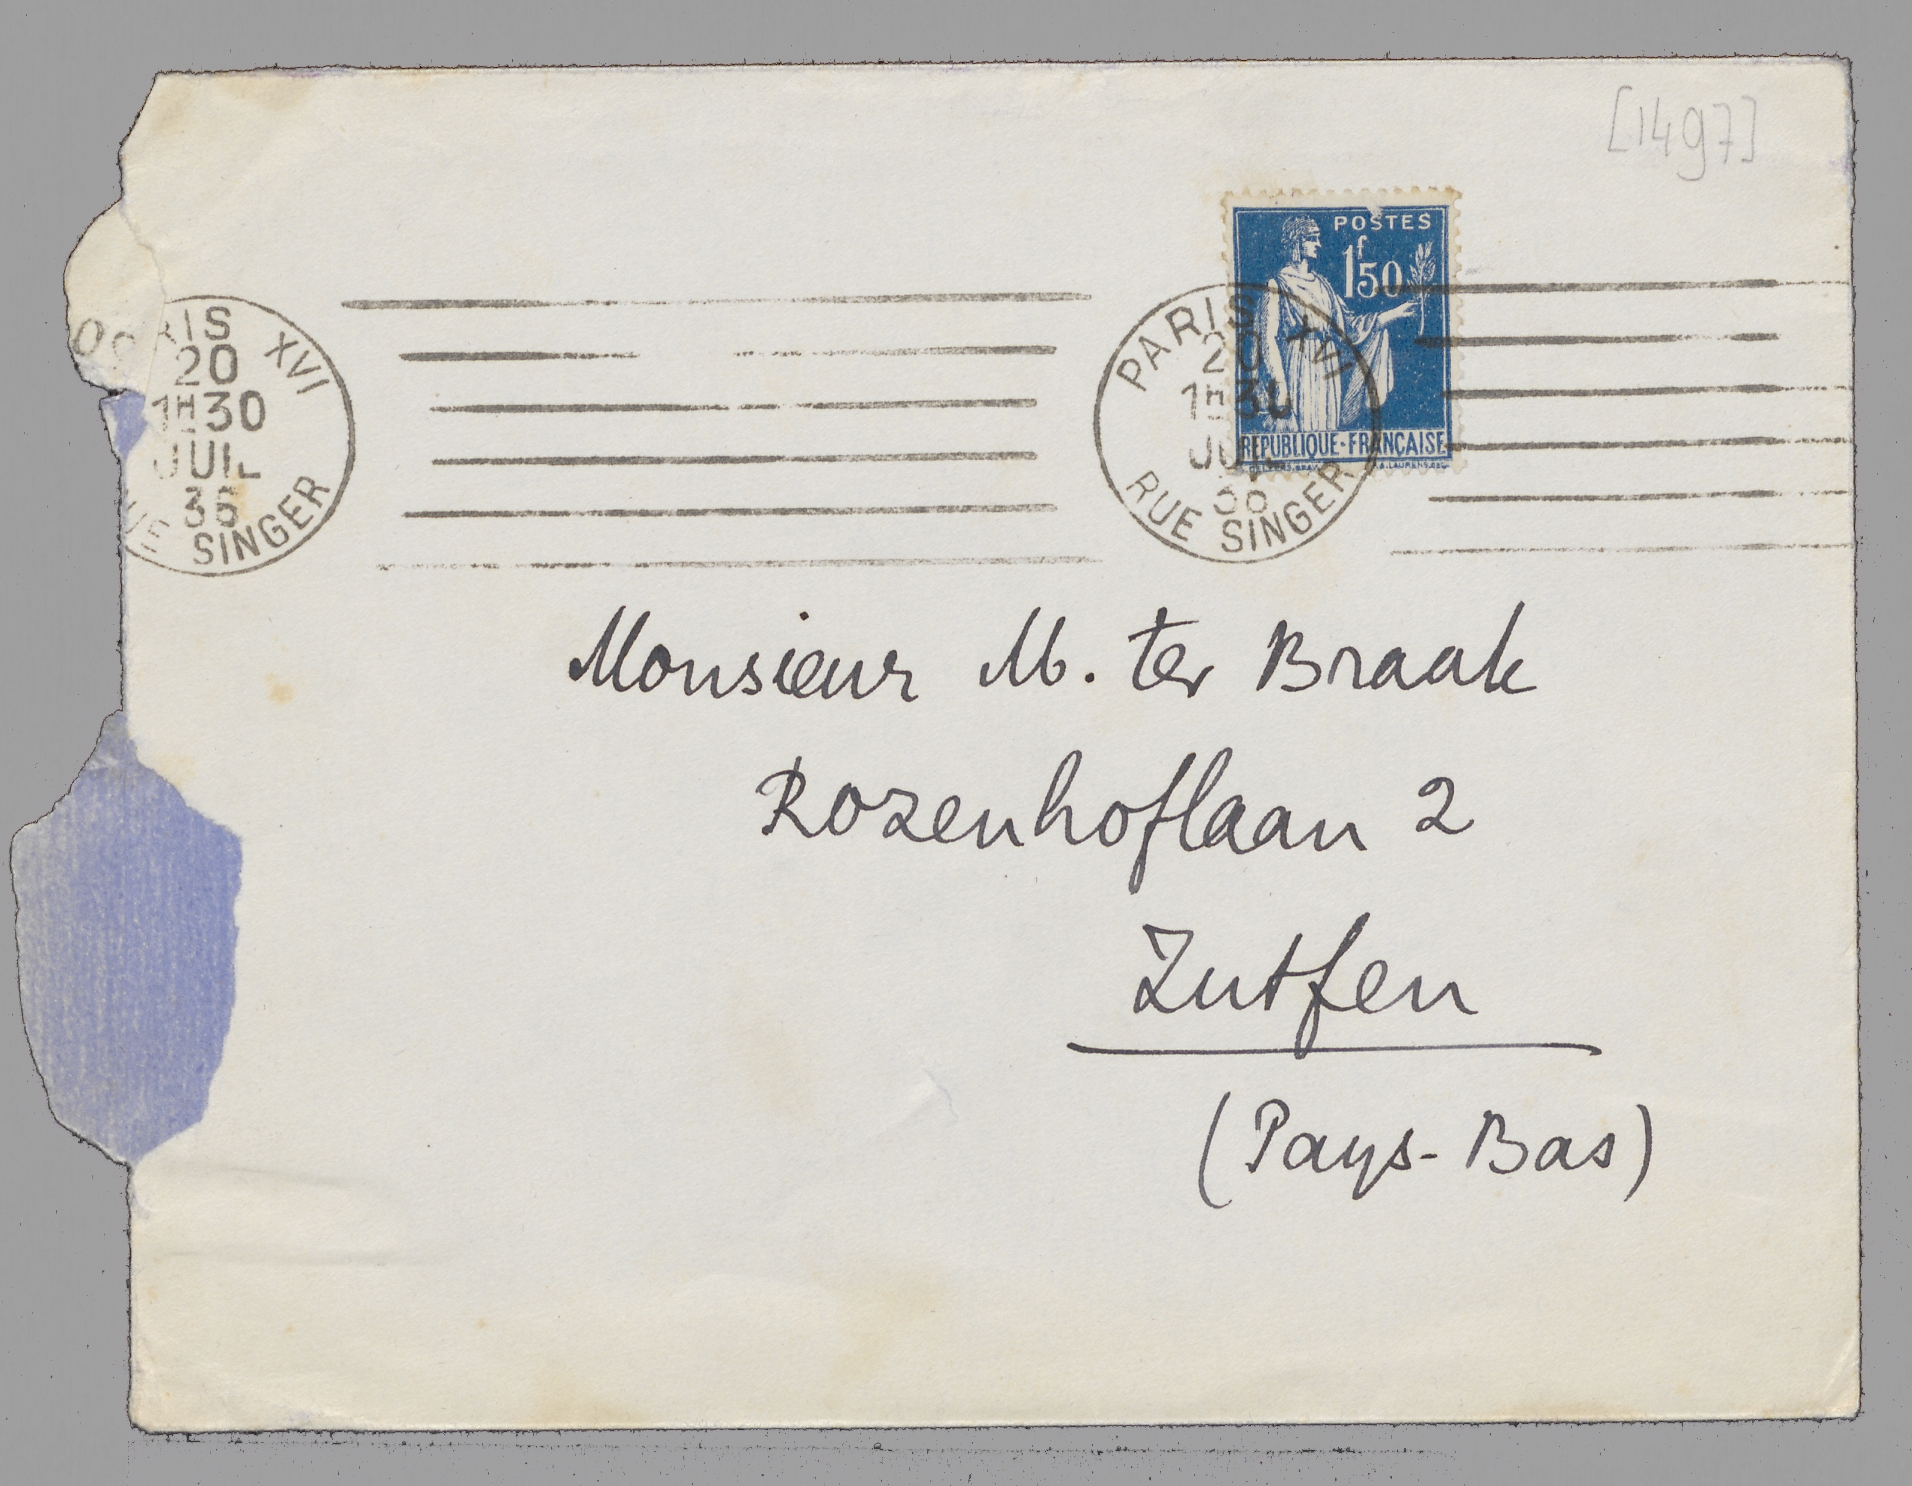 [1497]
POSTES
1f50
REPUBLIQUE-FRANÇAISE
PARIS XVI
20
1H30
JUIL
36
RUE SINGER
PARIS XVI
20
1H30
JUIL
36
RUE SINGER
Monsieur M. ter Braak
Rozenhoflaan 2
Zutfen
(Pays-Bas)